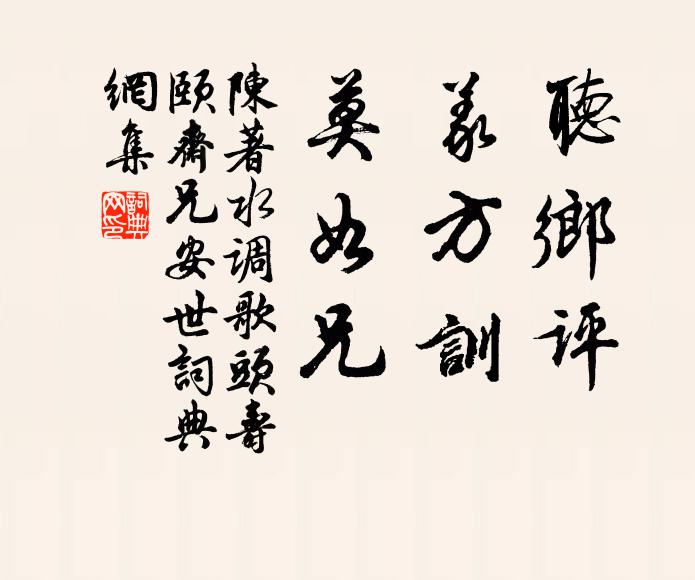 聽鄉評
義方訓
莫如兄
陳著水调歌頭壽
頤齋兄安世詞典
網集
詞典網印